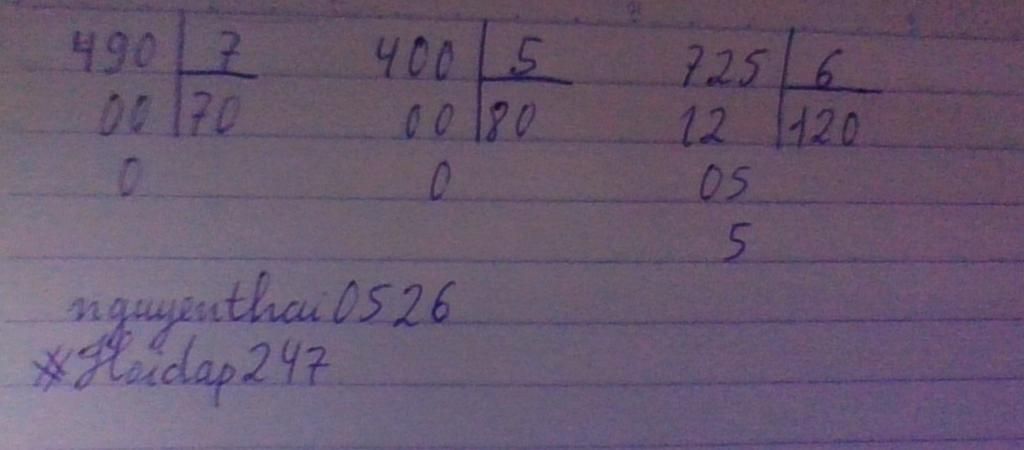 490 7 400 5 725 6
00 70 00 80 12 120
0 0 05
5
nguyenthai0526
#Hoidap247